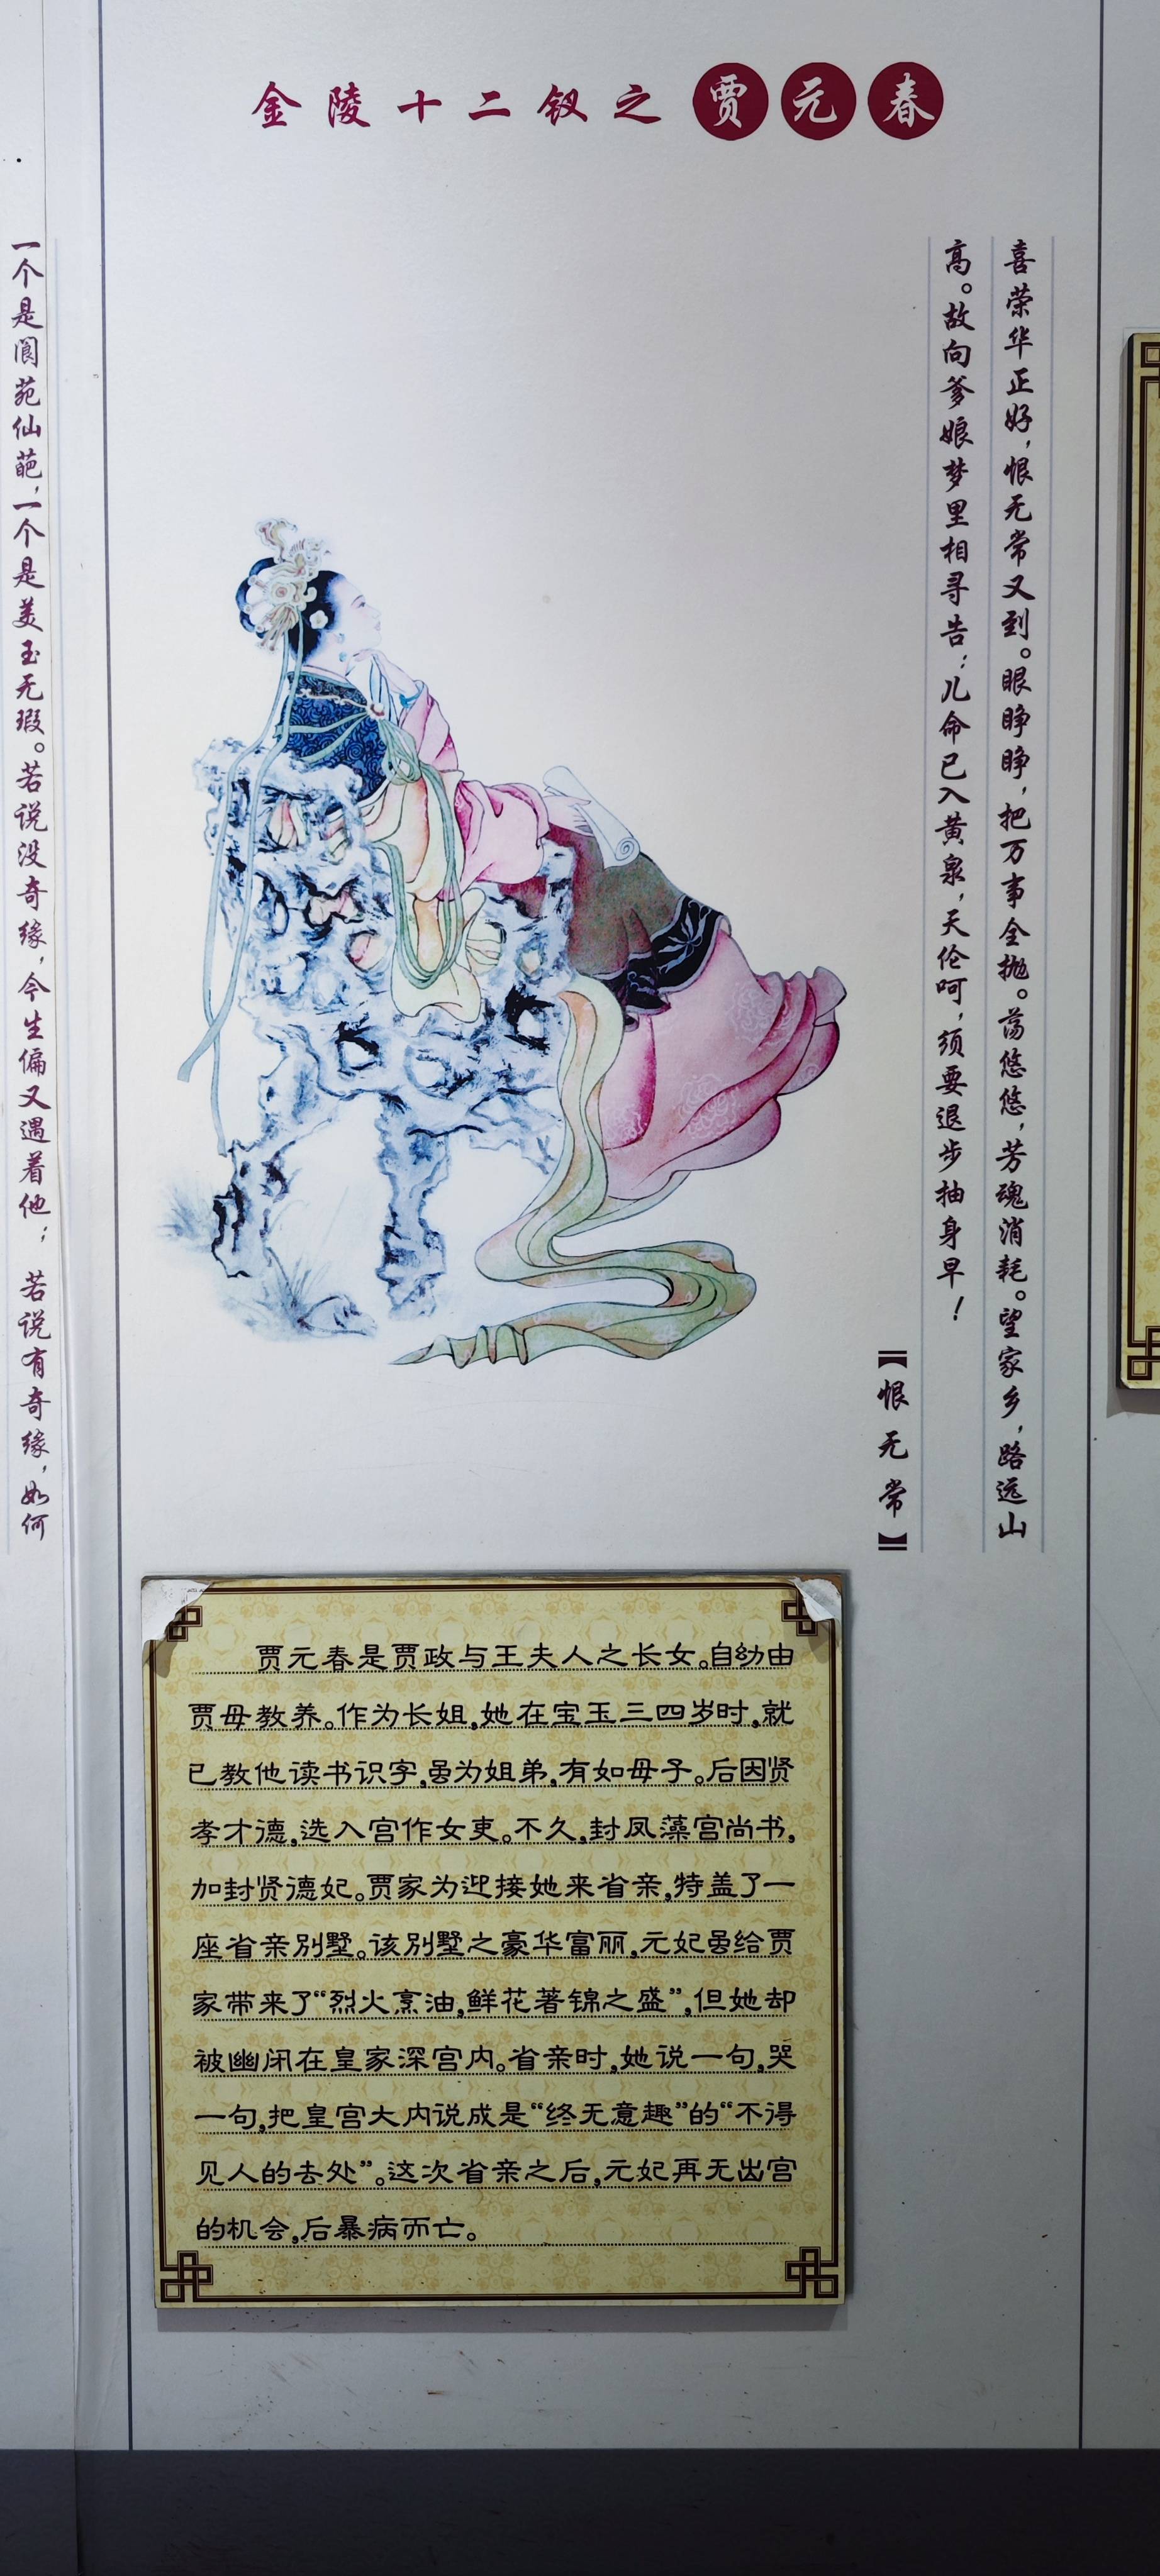 金陵十二钗之贾元春
喜荣华正好，恨无常又到。眼睁睁，把万事全抛。荡悠悠，芳魂消耗。望家乡，路远山
高。故向爹娘梦里相寻告：儿命已入黄泉，天伦呵，须要退步抽身早！
【恨无常】
一个是阆苑仙葩，一个是美玉无瑕。若说没奇缘，今生偏又遇着他；若说有奇缘，如何
贾元春是贾政与王夫人之长女。自幼由
贾母教养。作为长姐，她在宝玉三四岁时，就
已教他读书识字，虽为姐弟，有如母子。后因贤
孝才德，选入宫作女吏。不久，封凤藻宫尚书，
加封贤德妃。贾家为迎接她来省亲，特盖了一
座省亲别墅。该别墅之豪华富丽，元妃虽给贾
家带来了“烈火烹油，鲜花著锦之盛”，但她却
被幽闭在皇家深宫内。省亲时，她说一句，哭
一句，把皇宫大内说成是“终无意趣”的“不得
见人的去处”。这次省亲之后，元妃再无出宫
的机会，后暴病而亡。